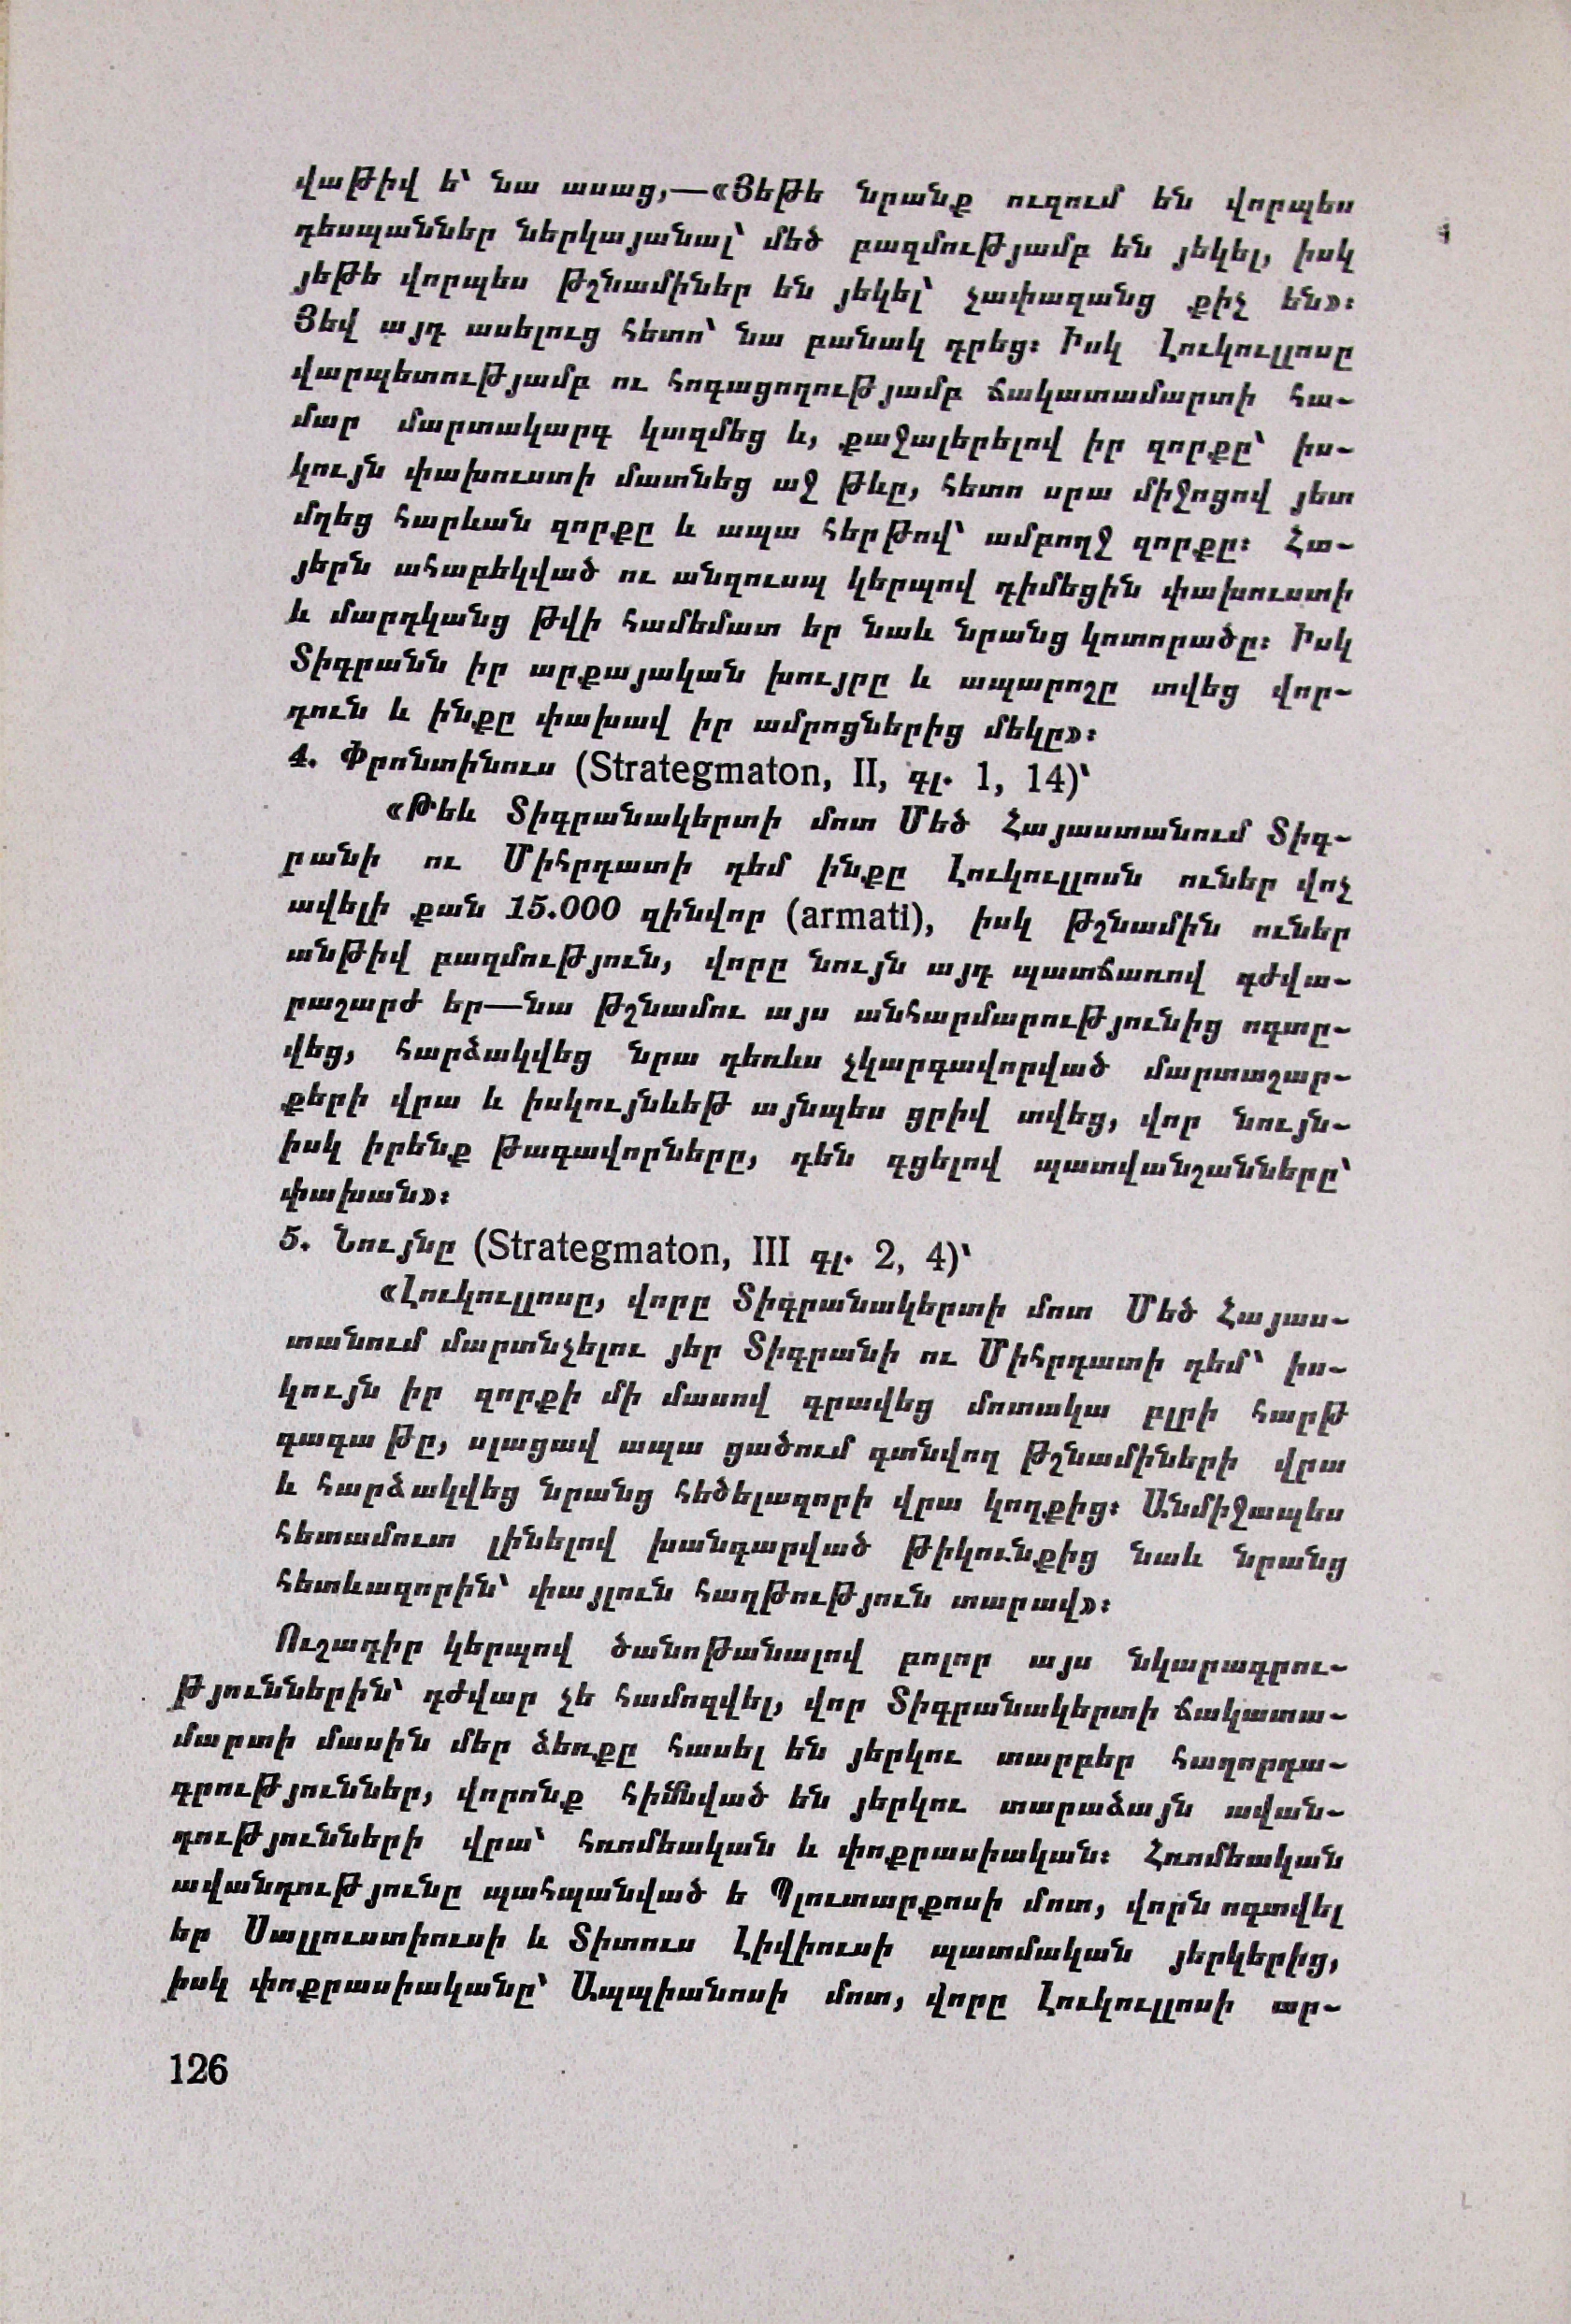 վաթիվ ե՝ նա ասաց,—«Յեթե նրանք ուզում են վորպես
դեսպաններ ներկայանալ՝ մեծ բազմությամբ են յեկել, իսկ
յեթե վորպես թշնամիներ են յեկել՝ չափազանց քիչ են»։
Յեվ այդ ասելուց հետո՝ նա բանակ դրեց։ Իսկ Լուկուլլոսը
վարպետությամբ ու հոգացողությամբ ճակատամարտի հա-
մար մարտակարգ կազմեց և, քաջալերելով իր զորքը՝ իս-
կույն փախուստի մատնեց աջ թևը, հետո սրա միջոցով յետ
մղեց հարևան զորքը և ապա հերթով՝ ամբողջ զորքը։ Հա-
յերն ահաբեկված ու անզուսպ կերպով դիմեցին փախուստի
և մարդկանց թվի համեմատ եր նաև նրանց կոտորածը։ Իսկ
Տիգրանն իր արքայական խույրը և ապարոշը տվեց վոր-
դուն և ինքը փախավ իր ամրոցներից մեկը»։
4. Փրոնտինուս (Strategmaton, II, գլ. 1, 14)՝
«Թեև Տիգրանակերտի մոտ Մեծ Հայաստանում Տիգ-
րանի ու Միհրդատի դեմ ինքը Լուկուլլոսն ուներ վոչ
ավելի քան 15.000 զինվոր (armati), իսկ թշնամին ուներ
անթիվ բազմություն, վորը նույն այդ պատճառով դժվա-
րաշարժ եր—նա թշնամու այս անհարմարությունից ոգտը-
վեց, հարձակվեց նրա դեռևս չկարգավորված մարտաշար-
քերի վրա և իսկույնևեթ այնպես ցրիվ տվեց, վոր նույն-
իսկ իրենք թագավորները, դեն գցելով պատվանշանները՝
փախան»։
5. Նույնը (Strategmaton, III գլ. 2, 4)՝
«Լուկուլլոսը, վորը Տիգրանակերտի մոտ Մեծ Հայաս-
տանում մարտնչելու յեր Տիգրանի ու Միհրդատի դեմ՝ իս-
կույն իր զորքի մի մասով գրավեց մոտակա բլրի հարթ
գագաթը, սլացավ ապա ցածում գտնվող թշնամիների վրա
և հարձակվեց նրանց հեծելազորի վրա կողքից։ Անմիջապես
հետամուտ լինելով խանգարված թիկունքից նաև նրանց
հետևազորին՝ փայլուն հաղթություն տարավ»։
Ուշադիր կերպով ծանոթանալով բոլոր այս նկարագրու-
թյուններին՝ դժվար չե համոզվել, վոր Տիգրանակերտի ճակատա-
մարտի մասին մեր ձեռքը հասել են յերկու տարբեր հաղորդա-
գրություններ, վորոնք հիմնված են յերկու տարաձայն ավան-
դությունների վրա՝ հռոմեական և փոքրասիական։ Հռոմեական
ավանդությունը պահպանված ե Պլուտարքոսի մոտ, վորն ոգտվել
եր Սալլուստիուսի և Տիտուս Լիվիուսի պատմական յերկերից,
իսկ փոքրասիականը՝ Ապպիանոսի մոտ, վորը Լուկուլլոսի ար-
126